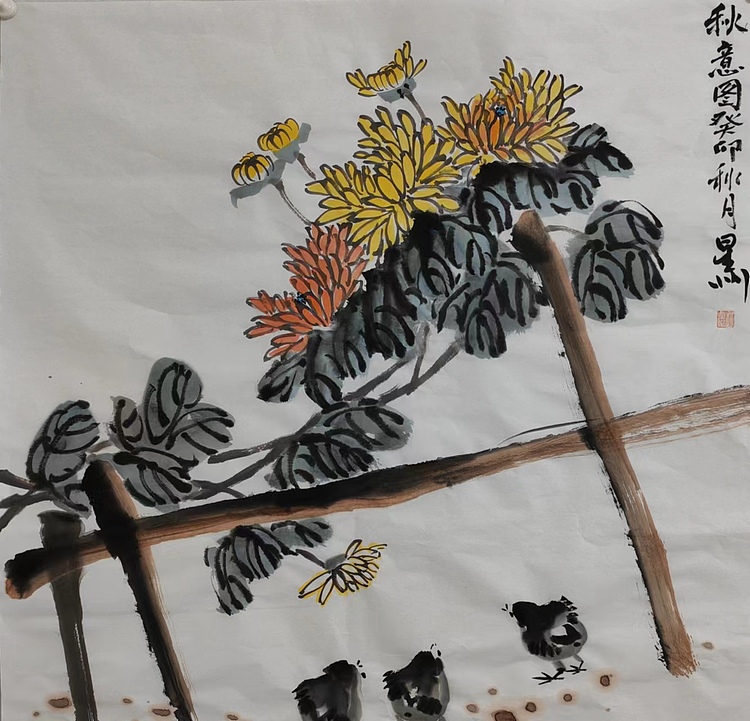 秋意图癸卯秋月